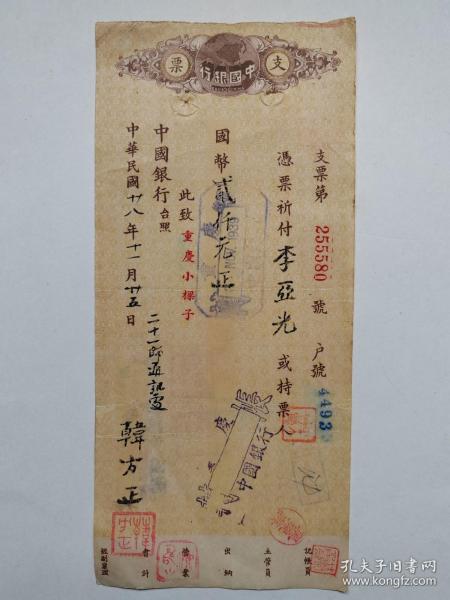 中國銀行
支票
支票第 255580 號 戶號 4493
憑票祈付 李亞光 或持票人
國幣 貳仟元正
此致重慶小樑子
中國銀行台照
二十一師通訊處
韓方正
中華民國廿八年十一月廿五日
中國銀行
記帳員
主管員
出納
營業
會計
孔夫子旧书网